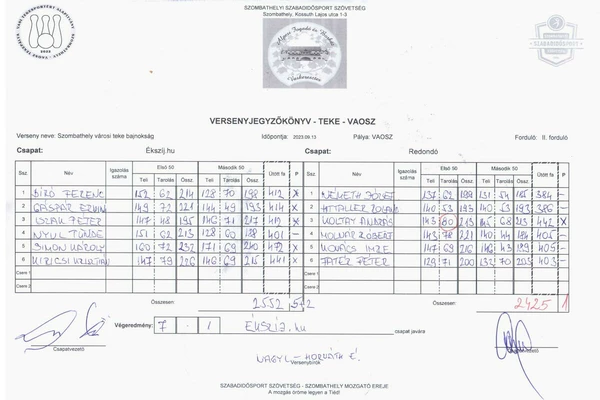 SZOMBATHELYI SZABADIDŐSPORT SZÖVETSÉG
Szombathely, Kossuth Lajos utca 1-3
SZABADIDŐSPORT
VERSENYJEGYZŐKÖNYV - TEKE - VAOSZ
Verseny neve: Szombathely városi teke bajnokság Időpontja: 2023.09.13 Pálya: VAOSZ Forduló: II. forduló
Csapat: Ékszíj.hu Csapat: Redondó
Ssz. Név Igazolás száma Első 50 Második 50 Ütött fa P Ssz. Név Igazolás száma Első 50 Második 50 Ütött fa P
Teli Tarolás Össz Teli Tarolás Össz Teli Tarolás Össz Teli Tarolás Össz
1 BÍRÓ FERENC 152 62 214 128 70 198 412 X 1 NÉMETH JÓZSEF 137 62 199 131 54 185 384 –
2 GÁSPÁR ERVIN 149 72 221 144 49 193 414 X 2 140 53 193 140 53 193 386 –
3 147 48 195 146 71 217 412 X 3 VOLTAY ANDRÁS 143 80 213 68 213 442 X
4 NYUL TÜNDE 151 62 213 128 60 188 401 – 4 MOLNÁR RÓBERT 143 78 221 140 44 184 405 –
5 SIMON KÁROLY 160 72 232 171 69 240 472 X 5 KOVÁCS IMRE 147 69 216 146 43 189 405 –
6 147 79 226 146 69 215 441 X 6 PATER PÉTER 129 71 200 132 70 203 403 –
Csere 1 Csere 1
Csere 2 Csere 2
Összesen: 2552 5+2 Összesen: 2425 1
Végeredmény: 7 - 1 Ékszíj.hu csapat javára
Csapatvezető
NAGYL-HORVÁTH É.
Versenybírók
SZABADIDŐSPORT SZÖVETSÉG - SZOMBATHELY MOZGATÓ EREJE
A mozgás öröme legyen a Tiéd!